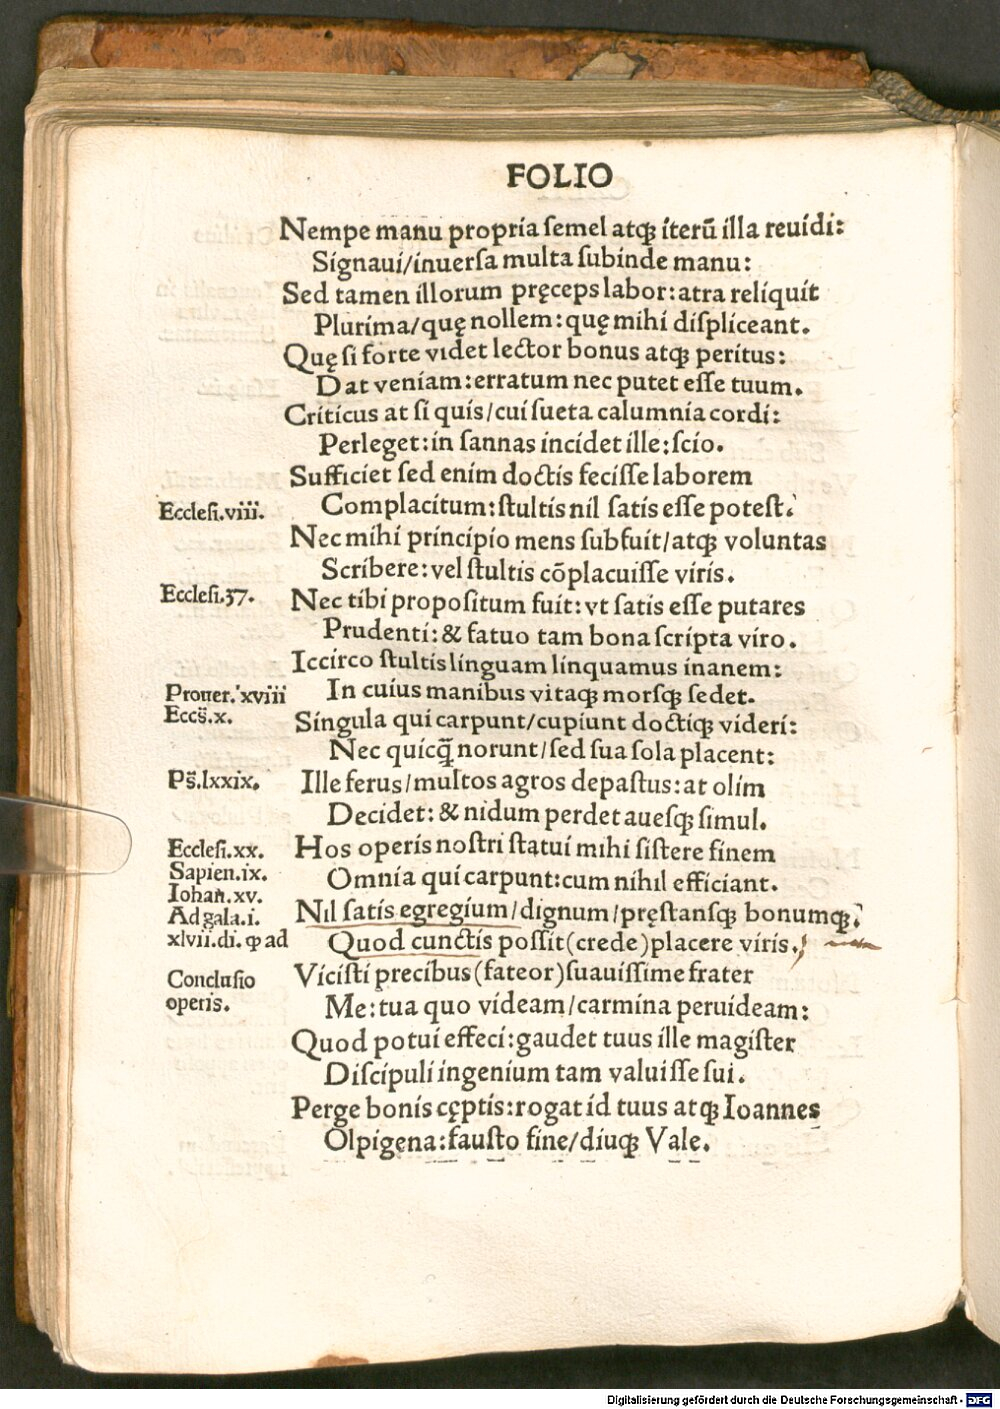 FOLIO
Nempe manu propria ſemel atqꝫ iterū illa reuidi:
Signaui/inuerſa multa ſubinde manu:
Sed tamen illorum pręceps labor: atra reliquit
Plurima/quę nollem: quę mihi diſpliceant.
Quę ſi forte videt lector bonus atqꝫ peritus:
Dat veniam: erratum nec putet eſſe tuum.
Criticus at ſi quis/cui ſueta calumnia cordi:
Perleget: in ſannas incidet ille: ſcio.
Sufficiet ſed enim doctis feciſſe laborem
Eccleſi.viii. Complacitum: ſtultis nil ſatis eſſe poteſt.
Nec mihi principio mens ſubfuit/atqꝫ voluntas
Scribere: vel ſtultis cōplacuiſſe viris.
Eccleſi.37. Nec tibi propoſitum fuit: vt ſatis eſſe putares
Prudenti: & fatuo tam bona ſcripta viro.
Iccirco ſtultis linguam linquamus inanem:
Prouer.xviii In cuius manibus vitaqꝫ morſqꝫ ſedet.
Eccs̄.x. Singula qui carpunt/cupiunt doctiqꝫ videri:
Nec quicq̄ norunt/ſed sua ſola placent:
Ps̄.lxxix. Ille ferus/multos agros depaſtus: at olim
Decidet: & nidum perdet aueſqꝫ ſimul.
Eccleſi.xx. Hos operis noſtri ſtatui mihi ſiſtere finem
Sapien.ix. Omnia qui carpunt: cum nihil efficiant.
Iohan̄.xv.
Ad gala.i. Nil ſatis egregium/dignum/pręſtanſqꝫ bonumqꝫ:
xlvii.di. ꝙ ad Quod cunctis poſſit (crede) placere viris.
Viciſti precibus (fateor) ſuauiſſime frater
Concluſio
operis. Me: tua quo videam/carmina peruideam:
Quod potui effeci: gaudet tuus ille magiſter
Diſcipuli ingenium tam valuiſſe ſui.
Perge bonis cęptis: rogat id tuus atqꝫ Ioannes
Olpigena: fauſto fine/diuqꝫ Vale.
Digitalisierung gefördert durch die Deutsche Forschungsgemeinschaft - DFG